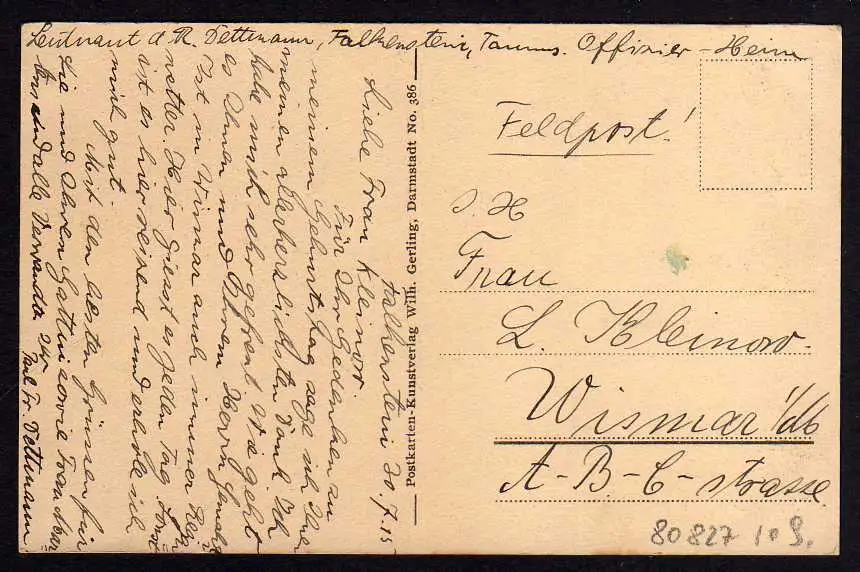 Leutnant d. R. Dettmann, Falkenstein, Taunus. Offizier-Heim
Feldpost!
S. H
Frau
L. Kleinow.
Wismar i/M
A-B-C-strasse.
80827 10 S.
Postkarten-Kunstverlag Wilh. Gerling, Darmstadt No. 386
Falkenstein 20.7.15
Liebe Frau Kleinow.
Für Ihr Gedenken an
meinem Geburtstag sage ich Ihnen
meinen allerherzlichsten Dank. Ich
habe mich sehr gefreut. Wie geht
es Ihnen und Ihrem Herrn Gemahl
Ist in Wismar auch immer Re
netter. Hier giesst es jeden Tag. Sonst
ist es hier reizend und erhole ich
mich gut.
Mit den besten Grüssen für
Sie und Ihren Gatten sowie Frau
und alle Verwandte
Dettmann